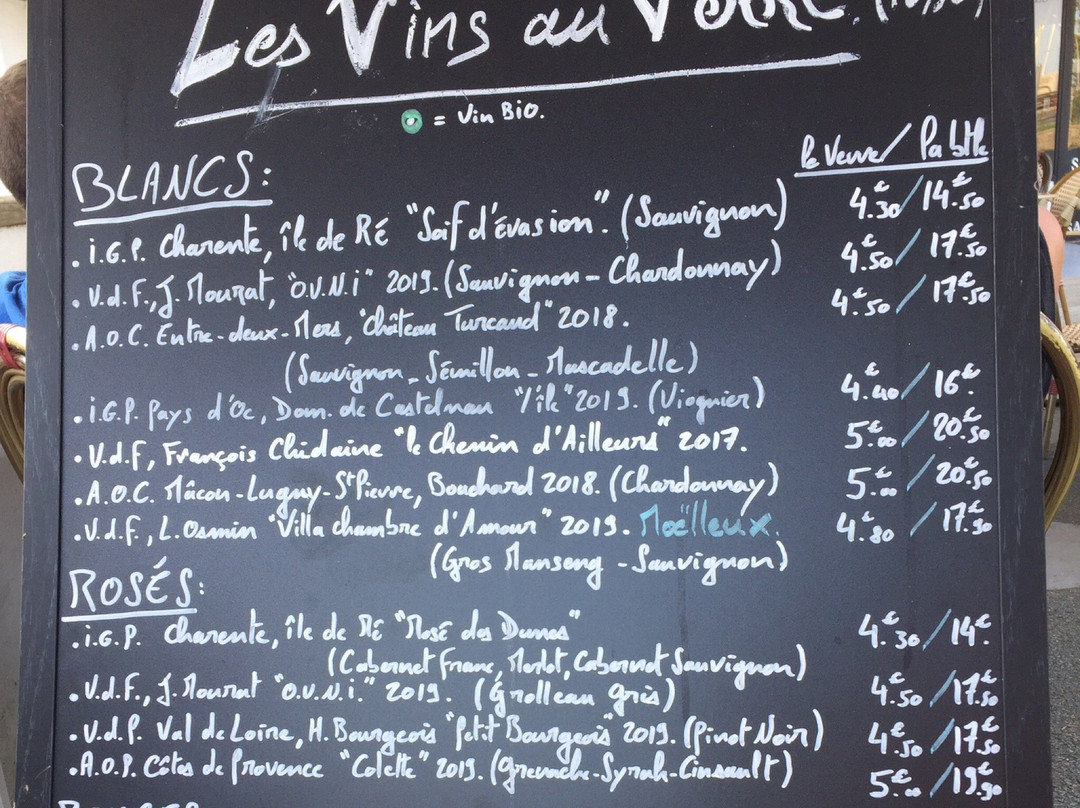 Les Vins au Verre.
= Vin Bio.
le Verre / la btlle
BLANCS:
. i.G.P. Charente, île de RÉ "Soif d'évasion". (Sauvignon) 4.€30 / 14.€50
. V.d.F., J. Mourat, "O.V.N.i" 2019. (Sauvignon - Chardonnay) 4.€50 / 17.€50
. A.O.C. Entre-deux-Mers, "Château Turcaud" 2018. 4.€50 / 17.€50
(Sauvignon - Sémillon - Muscadelle)
. i.G.P. Pays d'Oc, Dom. de Castelnau "l'île" 2019. (Viognier) 4.€40 / 16€.
. V.d.F, François Chidaine "le Chemin d'Ailleurs" 2017. 5.€00 / 20.€50
. A.O.C. Mâcon-Lugny-St Pierre, Bouchard 2018. (Chardonnay) 5.€00 / 20.€50
. V.d.F., L. Osmin "Villa chambre d'Amour" 2019. Moëlleux. 4.€80 / 17.€90
(Gros Manseng - Sauvignon)
ROSÉS:
. i.G.P. Charente, île de Ré "Rosé des Dunes" 4.€30 / 14€.
(Cabernet franc, Merlot, Cabernet Sauvignon)
. V.d.F., J. Mourat "O.V.N.i." 2019. (Grolleau Gris) 4.€50 / 17.€50
. V.d.P. Val de Loire, H. Bourgeois "Petit Bourgeois" 2019. (Pinot Noir) 4.€50 / 17.€50
. A.O.P. Côtes de Provence "Colette" 2019. (Grenache-Syrah-Cinsault) 5.€00 / 19.€90